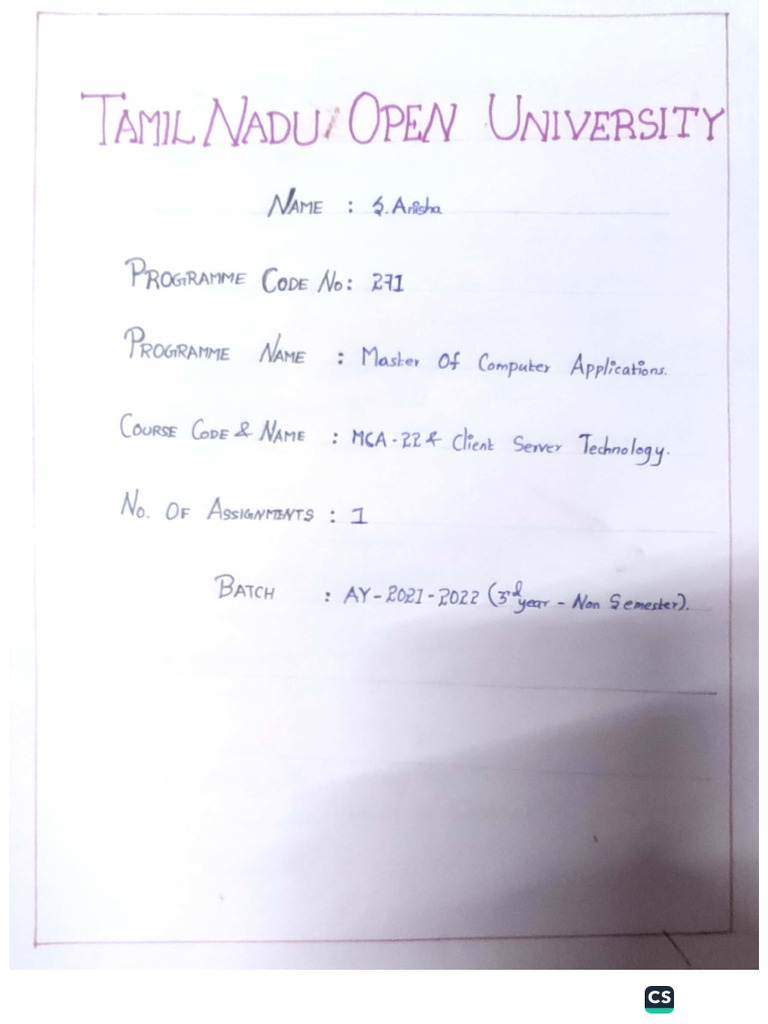 TAMIL NADU OPEN UNIVERSITY
NAME : S. Arisha
PROGRAMME CODE No: 271
PROGRAMME NAME : Master Of Computer Applications.
COURSE CODE & NAME : MCA-22 & Client Server Technology.
No. OF ASSIGNMENTS : 1
BATCH : AY-2021-2022 (3rd year - Non Semester).
CS